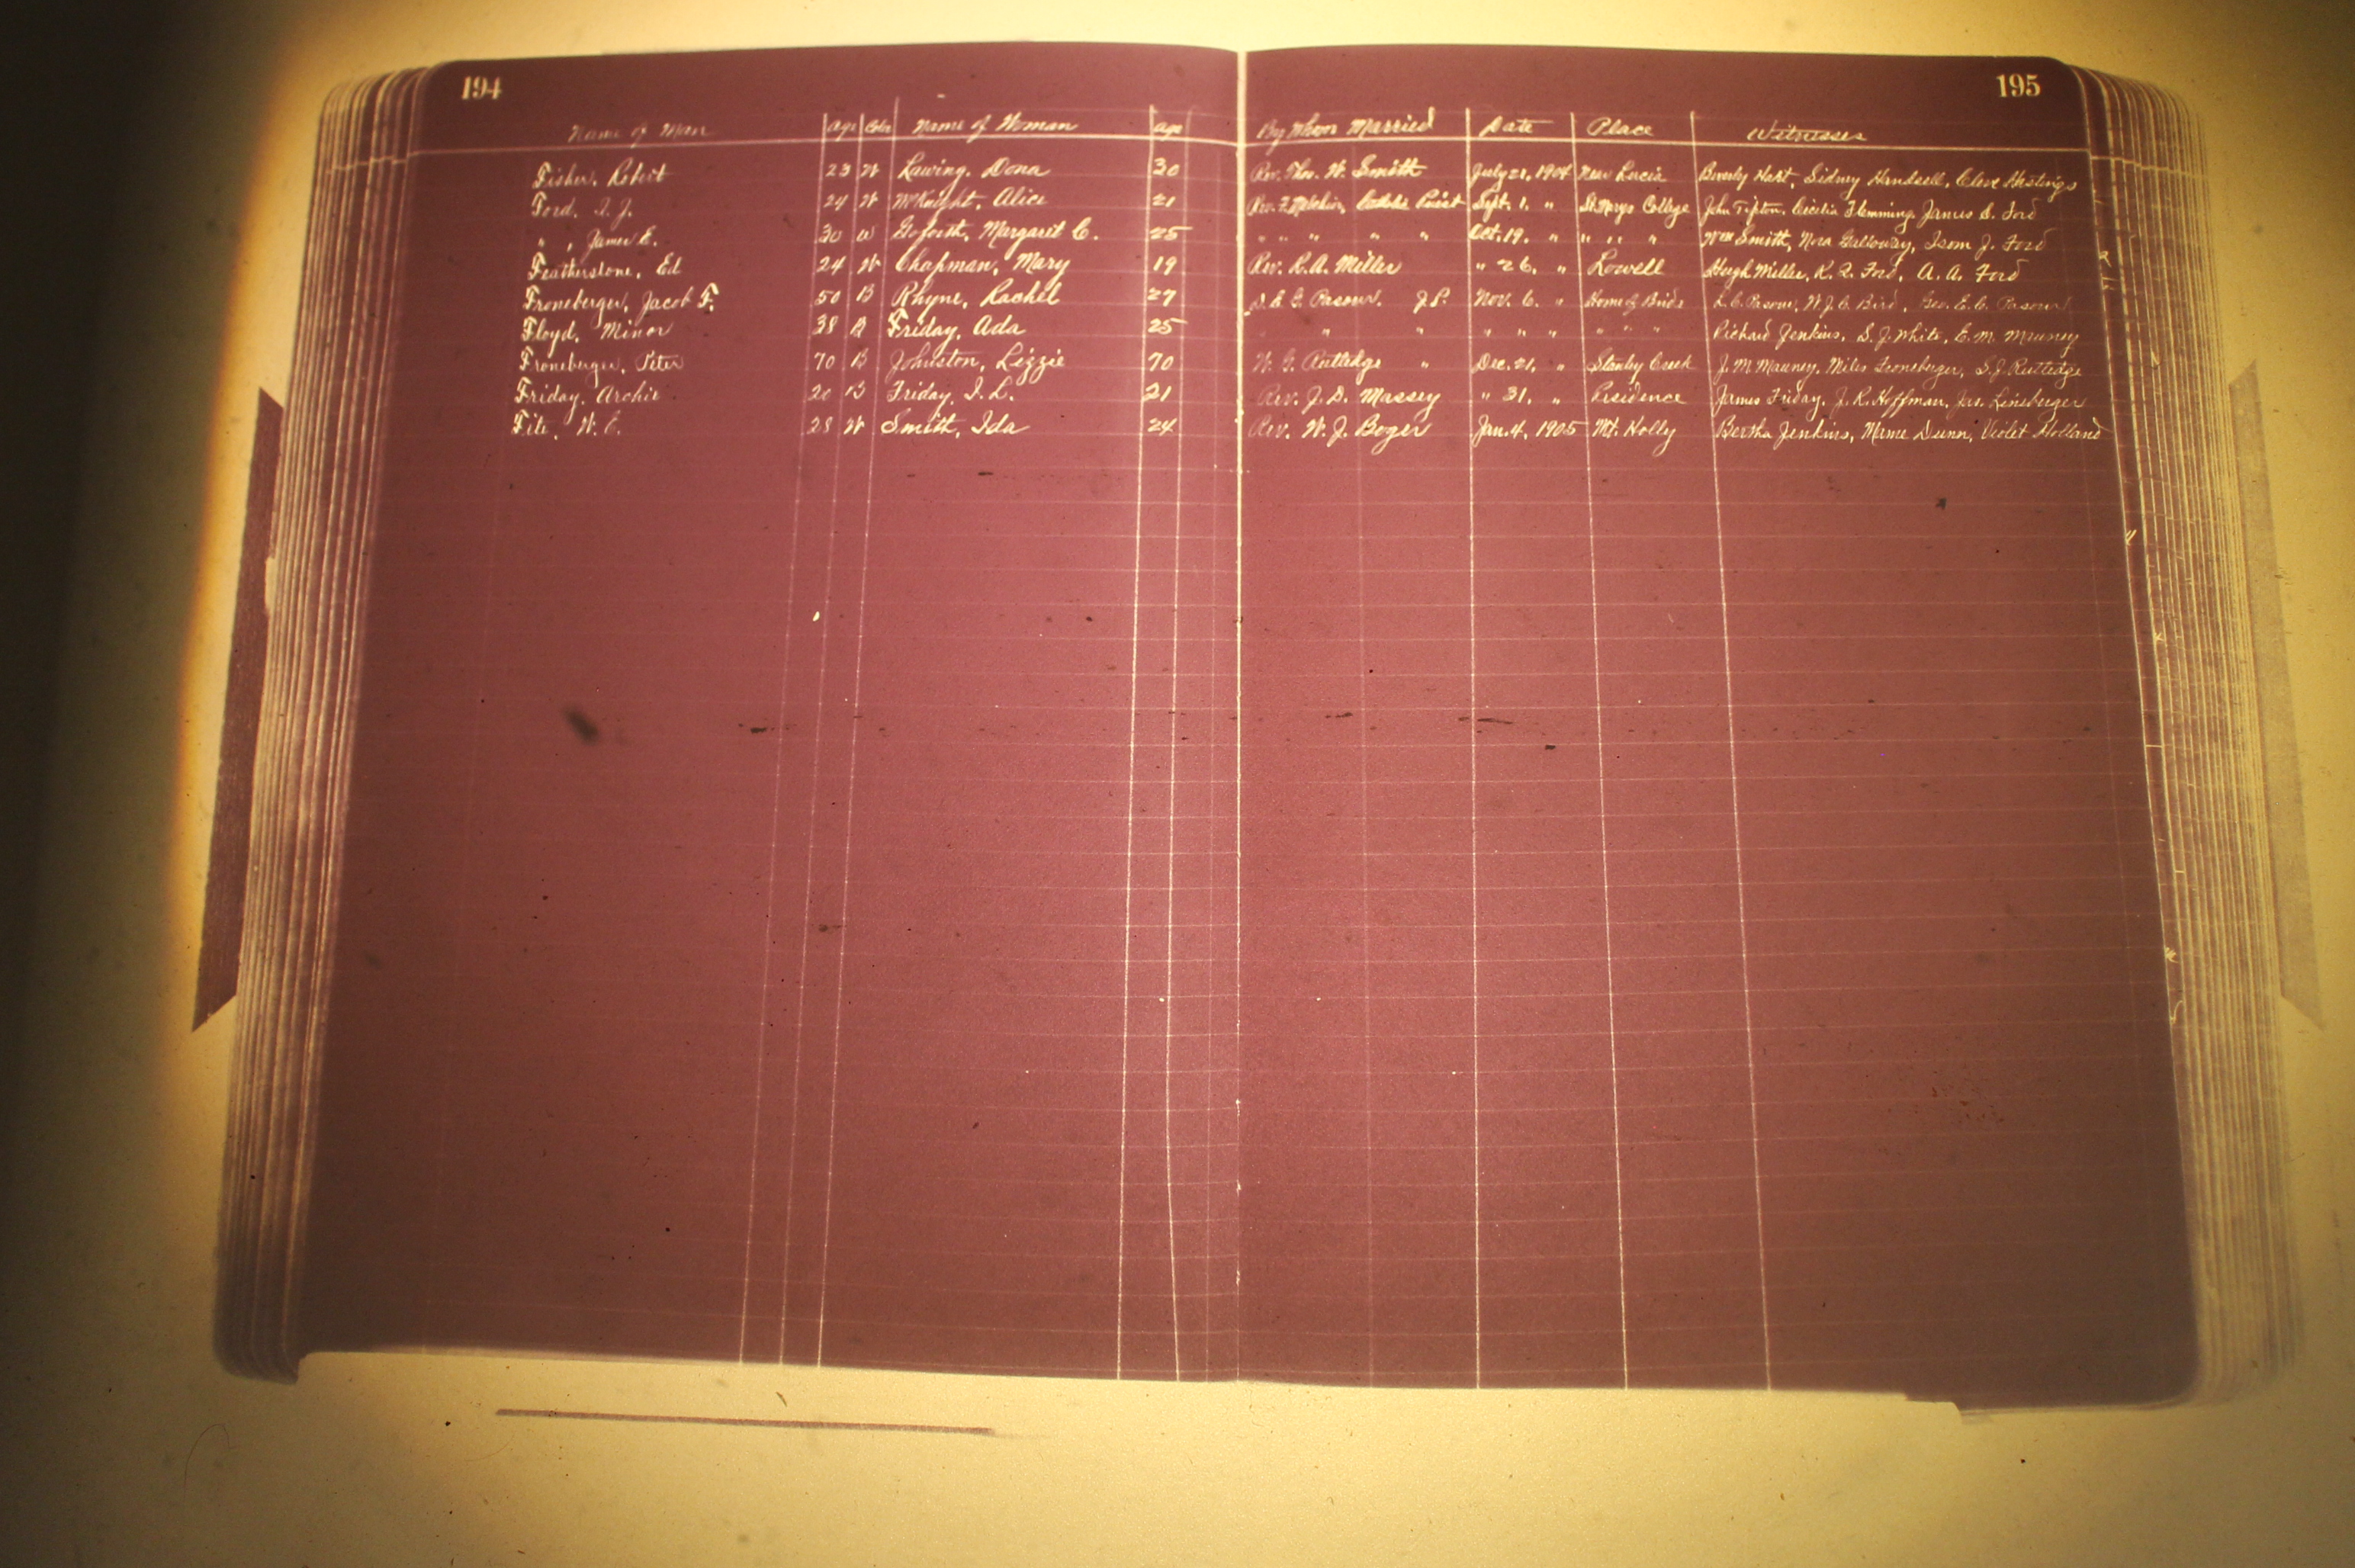 194 195
Name of Man Age Color Name of Woman Age By Whom Married Date Place Witnesses
Fisher, Robert 23 W Lawing, Dona 30 Rev. Thos. W. Smith July 21, 1904 Near Lucia Beverly Hart, Sidney Handsell, Cleve Hastings
Ford, I. J. 24 W McKnight, Alice 21 Rev. F. Melchior, Catholic Priest Sept. 1, " St Marys College John Tipton, Cecelia Flemming, James S. Ford
" , James E. 30 W Goforth, Margaret C. 25 " " " " " Oct. 19, " " " " Wm Smith, Nora Galloway, Isom J. Ford
Featherstone, Ed 24 W Chapman, Mary 19 Rev. R. A. Miller " 26, " Lowell Hugh Miller, R. L. Ford, A. A. Ford
Froneberger, Jacob F. 50 B Rhyne, Rachel 27 Pasour, J.P. Nov. 6, " Home of Bride L. C. Pasour, W. J. C. Bird, Geo. E. C. Pasour
Floyd, Minor 38 B Friday, Ada 25 " " " " " " " " Richard Jenkins, S. J. White, E. M. Mauney
Froneberger, Peter 70 B Johnston, Lizzie 70 W. G. Rutledge " Dec. 21, " Stanley Creek J. M. Mauney, Miles Froneberger, S. J. Rutledge
Friday, Archie 20 B Friday, I. L. 21 Rev. J. D. Massey " 31, " Residence James Friday, J. R. Hoffman, Jas. Lineberger
Fite, W. C. 28 W Smith, Ida 24 Rev. W. J. Boger Jan. 4, 1905 Mt. Holly Bertha Jenkins, Mame Dunn, Violet Holland